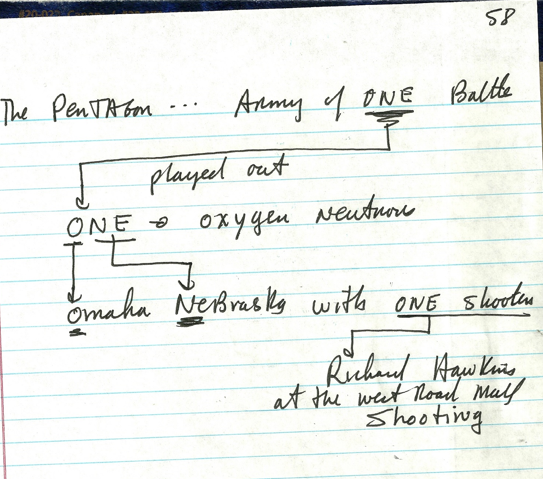 58
The PenTAgon ... Army of ONE Battle
played out
ONE → oxygen Neutron
Omaha NeBraska with ONE shooter
Richard Hawkins
at the west Road Mall
Shooting